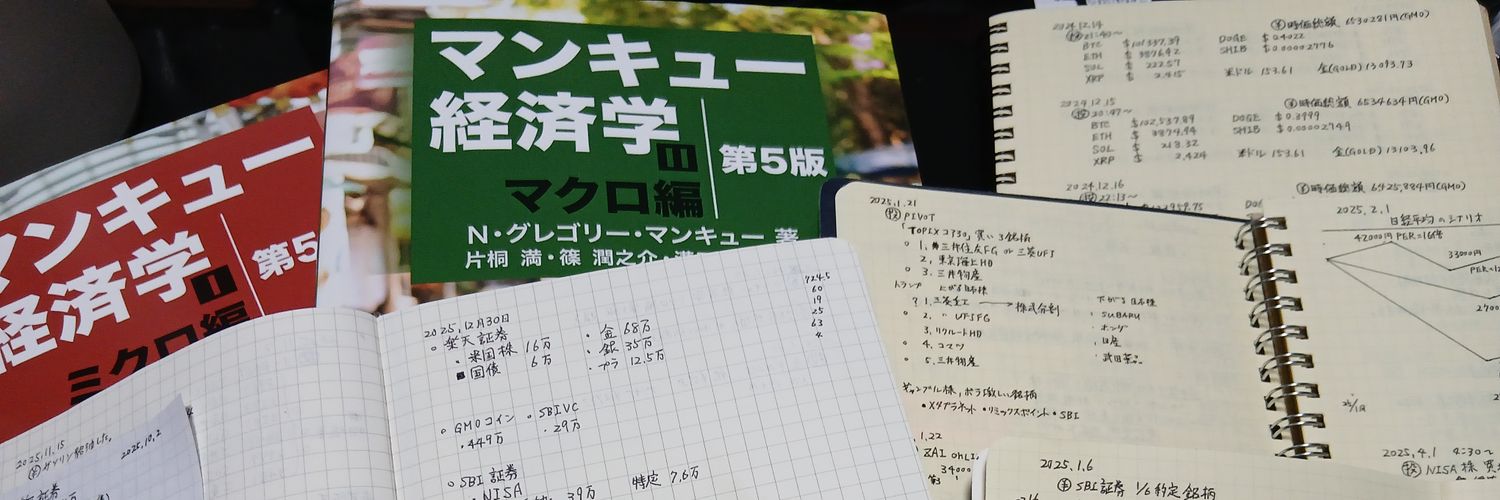 マンキュー
経済学
I
ミクロ編
第5
マンキュー
経済学
II
マクロ編
第5版
N・グレゴリー・マンキュー 著
片桐 満・篠 潤之介・溝
2024.12.14
21:40〜
時価総額 6530281円(GMO)
BTC $101337.39
DOGE $0.4022
ETH $3876.42
SHIB $0.00002776
SOL $222.57
XRP $2.415
米ドル 153.61
金(GOLD) 13093.73
2024.12.15
20:47〜
時価総額 6534634円(GMO)
BTC $102,537.89
DOGE $0.3999
ETH $3874.94
SHIB $0.00002749
SOL $218.32
XRP $2.424
米ドル 153.61
金(GOLD) 13103.96
2024.12.16
22:13〜
時価総額 6425,884円(GMO)
2959.75
DO
2025.1.21
PIVOT
「TOPIXコア30」買い3銘柄
1. 三井住友FG or 三菱UFJ
2. 東京海上HD
3. 三井物産
トランプ 上がる日本株
下がる日本株
? 1. 三菱重工 → 株式分割
・SUBARU
2. 〃 UFJFG
・ホンダ
3. リクルートHD
・日産
4. コマツ
・武田薬品
5. 三井物産
ギャンブル株、ボラ激しい銘柄
・メタプラネット・リミックスポイント・SBI
1.22
ZAI ONLI
34000
2025.2.1
日経平均のシナリオ
42000円 PER=16倍
33000円
PER=1
2700
2025.4.1 4:30〜
NISA 株 買
2025.1.6
SBI証券 1/6 約定銘柄
2025.12月30日
楽天証券
・米国株 16万
・国債 6万
・金 68万
・銀 35万
・プラ 12.5万
GMOコイン
・449万
SBIVC
・29万
SBI証券
・NISA
39万
特定 7.6万
724.5
60
19
25
63
4
2025.11.15
2025.10.2